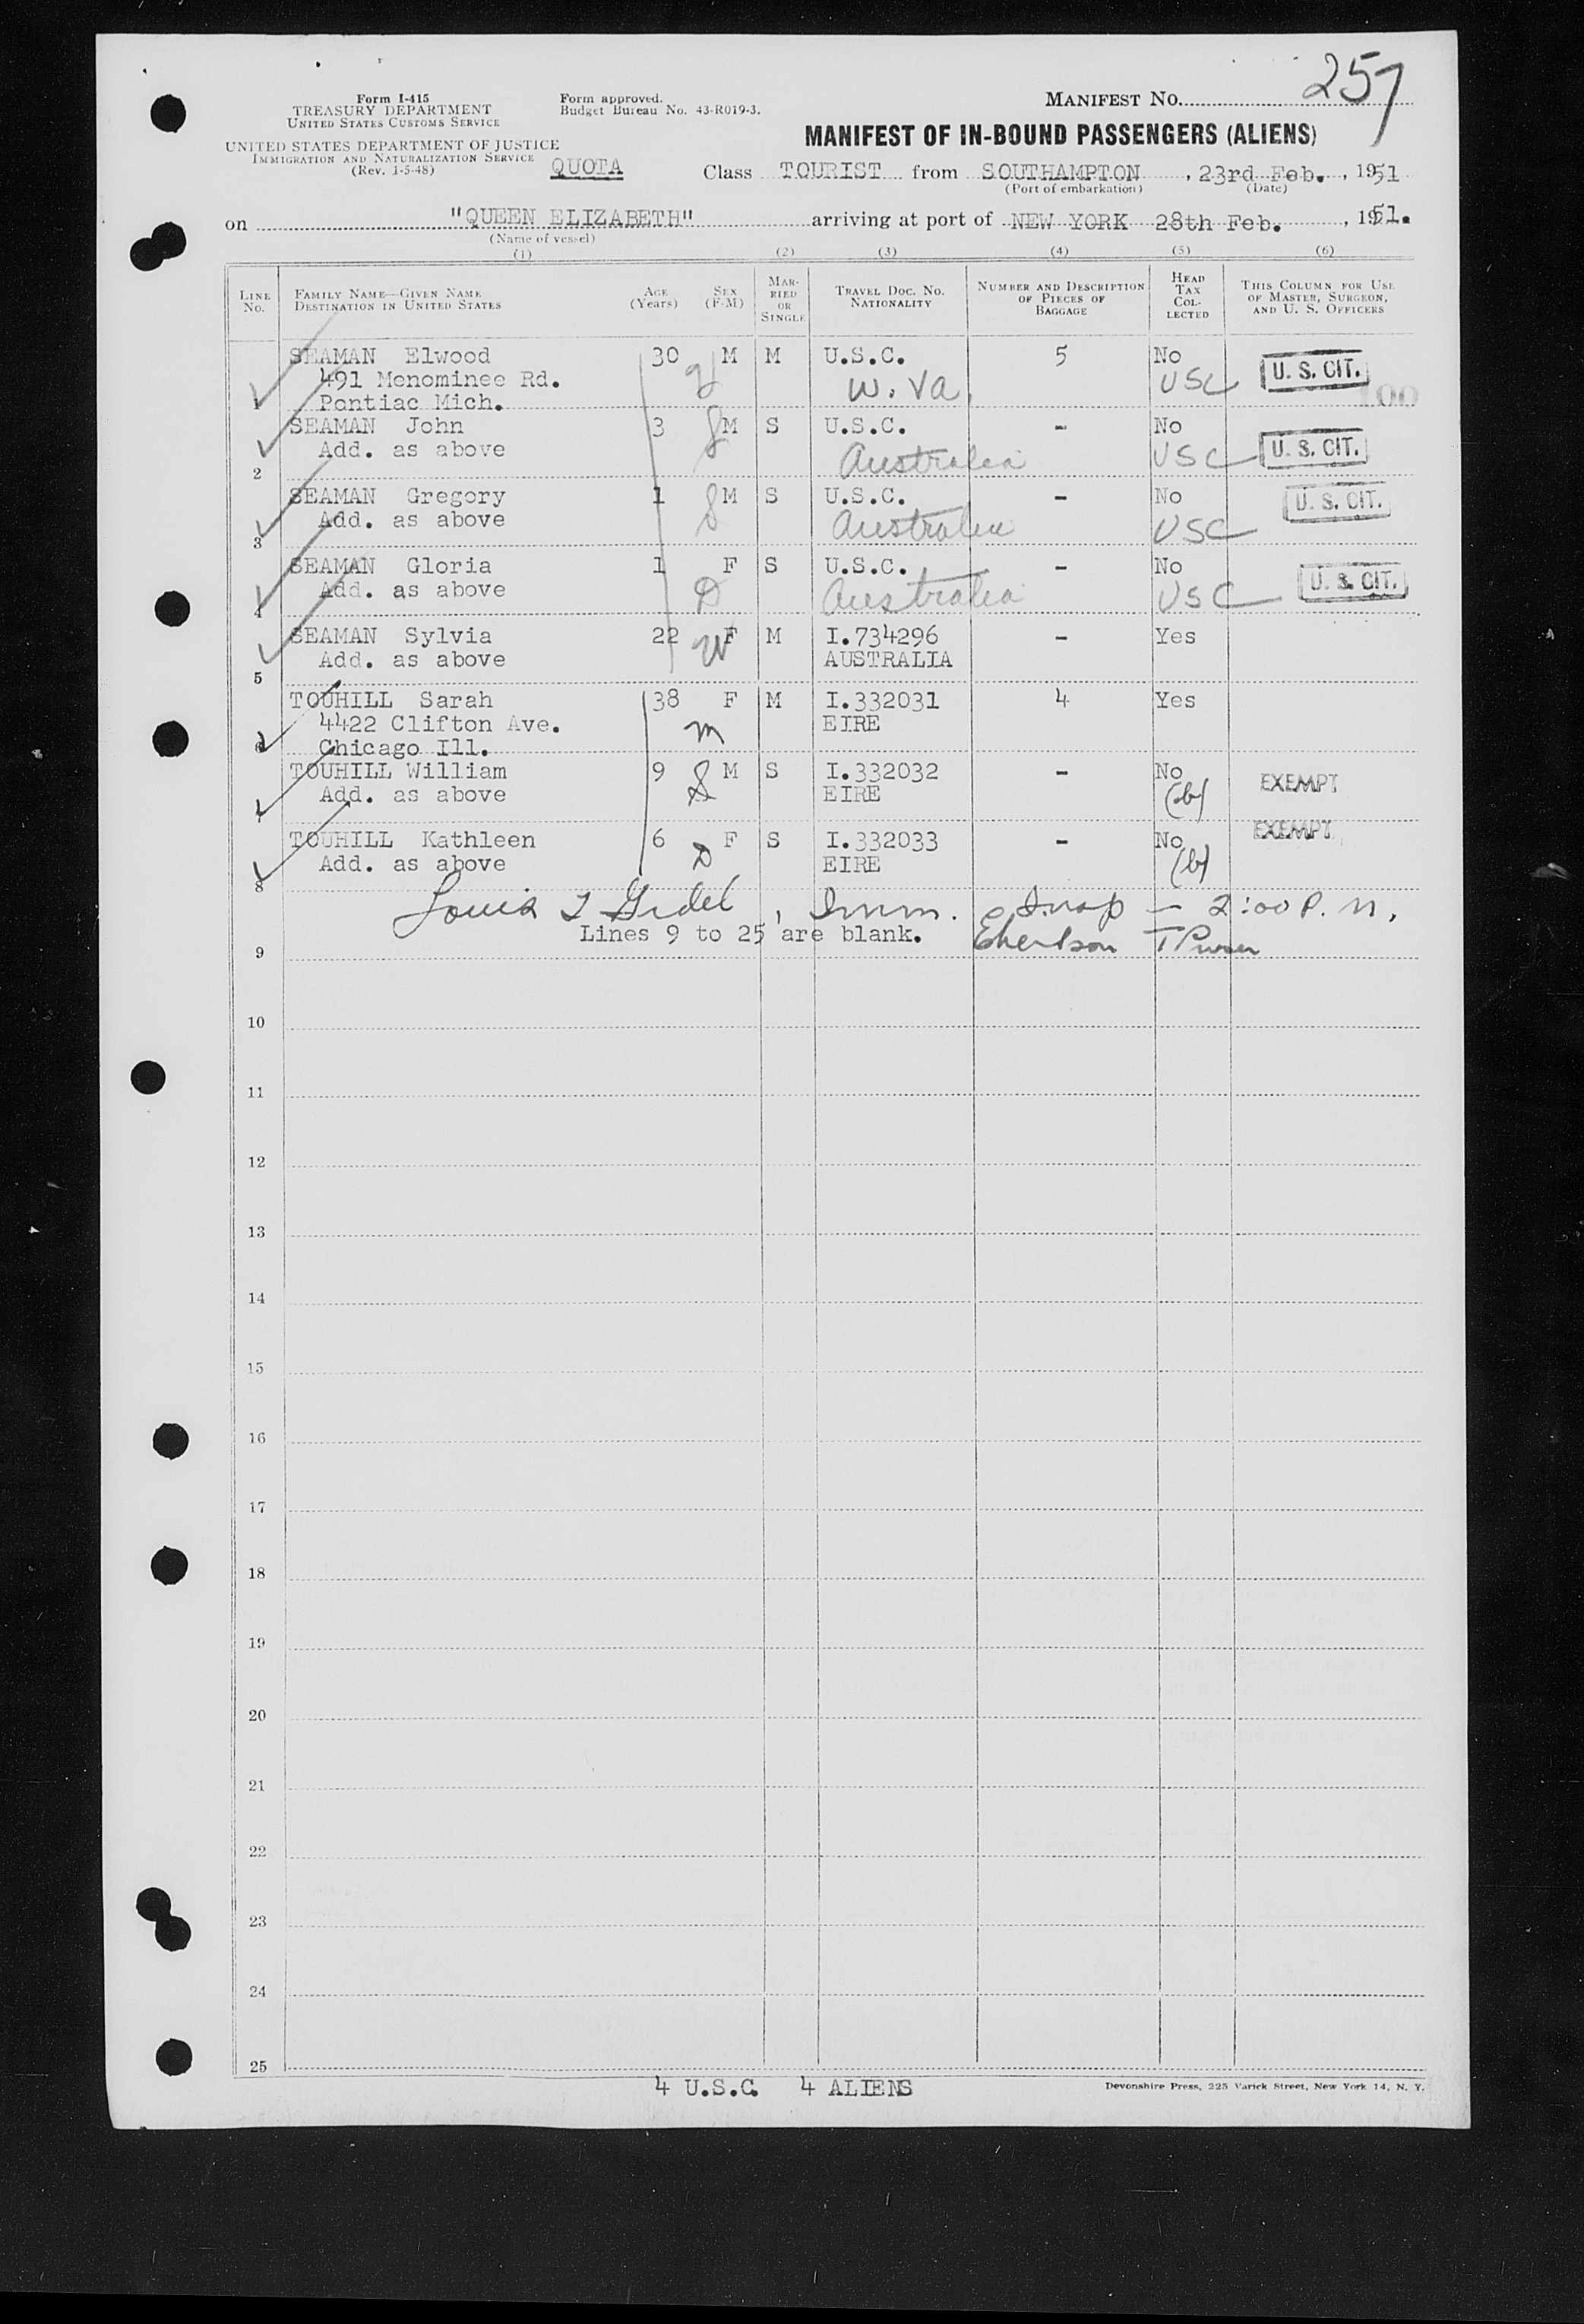 257
Form I-415
TREASURY DEPARTMENT
UNITED STATES CUSTOMS SERVICE
UNITED STATES DEPARTMENT OF JUSTICE
IMMIGRATION AND NATURALIZATION SERVICE
(Rev. 1-5-48)
Form approved.
Budget Bureau No. 43-R019-3.
QUOTA
MANIFEST NO.
MANIFEST OF IN-BOUND PASSENGERS (ALIENS)
Class TOURIST from SOUTHAMPTON, 23rd Feb., 1951
(Port of embarkation) (Date)
on "QUEEN ELIZABETH" arriving at port of NEW YORK 28th Feb., 1951.
(Name of vessel)
(1) (2) (3) (4) (5) (6)
LINE NO. FAMILY NAME—GIVEN NAME DESTINATION IN UNITED STATES AGE (Years) SEX (F-M) MARRIED OR SINGLE TRAVEL DOC. NO. NATIONALITY NUMBER AND DESCRIPTION OF PIECES OF BAGGAGE HEAD TAX COLLECTED THIS COLUMN FOR USE OF MASTER, SURGEON, AND U. S. OFFICERS
SEAMAN Elwood 30 M M U.S.C. 5 No U. S. CIT.
491 Menominee Rd. W. Va. USC
1 Pontiac Mich. 100
SEAMAN John 3 S M S U.S.C. - No
Add. as above Australia USC U. S. CIT.
2
SEAMAN Gregory 1 S M S U.S.C. - No U. S. CIT.
Add. as above Australia USC
3
SEAMAN Gloria 1 F S U.S.C. - No
Add. as above D Australia USC U. S. CIT.
4
SEAMAN Sylvia 22 W F M I.734296 - Yes
Add. as above AUSTRALIA
5
TOUHILL Sarah 38 F M I.332031 4 Yes
4422 Clifton Ave. m EIRE
6 Chicago Ill.
TOUHILL William 9 S M S I.332032 - No EXEMPT
Add. as above EIRE (b)
7
TOUHILL Kathleen 6 F S I.332033 - No EXEMPT
Add. as above D EIRE (b)
8
Louis , Imm. Insp — 2:00 P.M,
Lines 9 to 25 are blank.
9
10
11
12
13
14
15
16
17
18
19
20
21
22
23
24
25
4 U.S.C. 4 ALIENS
Devonshire Press, 225 Varick Street, New York 14, N. Y.